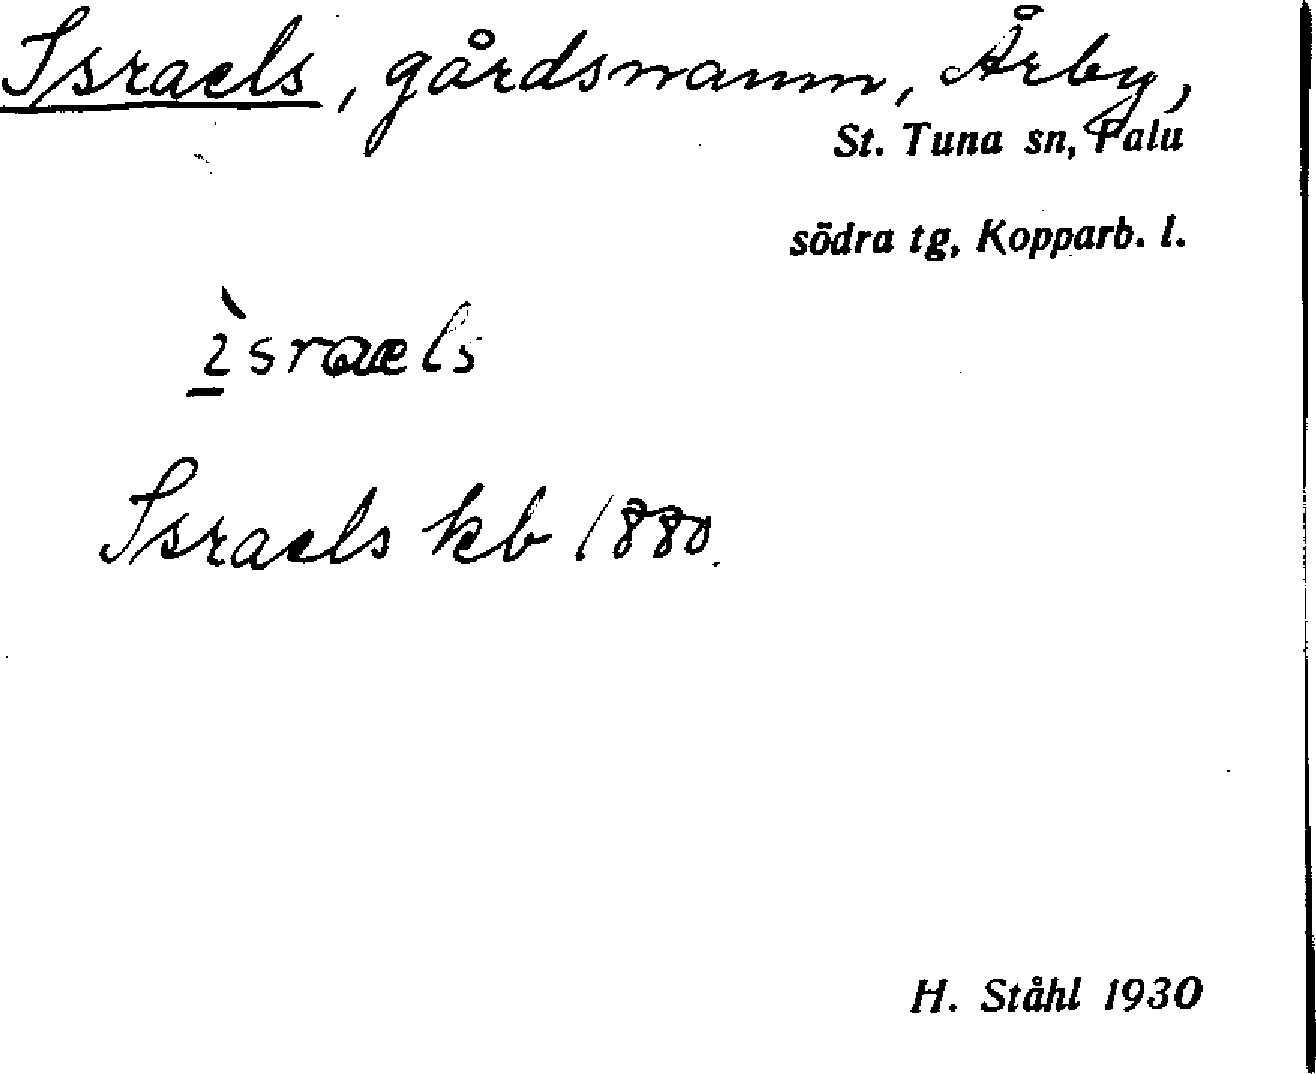 Israels, gårdsnamn, Årby,
St. Tuna sn, Falu
södra tg, Kopparb. l.
ìsraels
Israels kb 1880.
H. Ståhl 1930